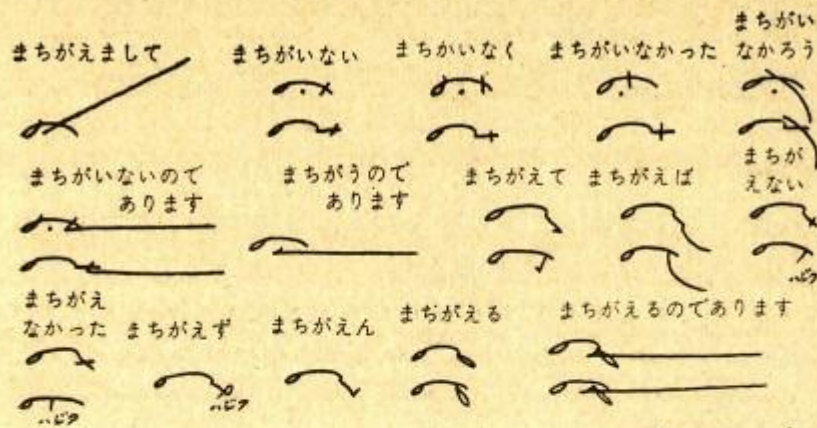 まちがえまして
まちがいない
まちかいなく
まちがいなかった
まちがい
なかろう
まちがいないので
あります
まちがうので
あります
まちがえて
まちがえば
まちが
えない
ハビク
まちがえ
なかった
ハビク
まちがえず
ハビク
まちがえん
まちがえる
まちがえるのであります